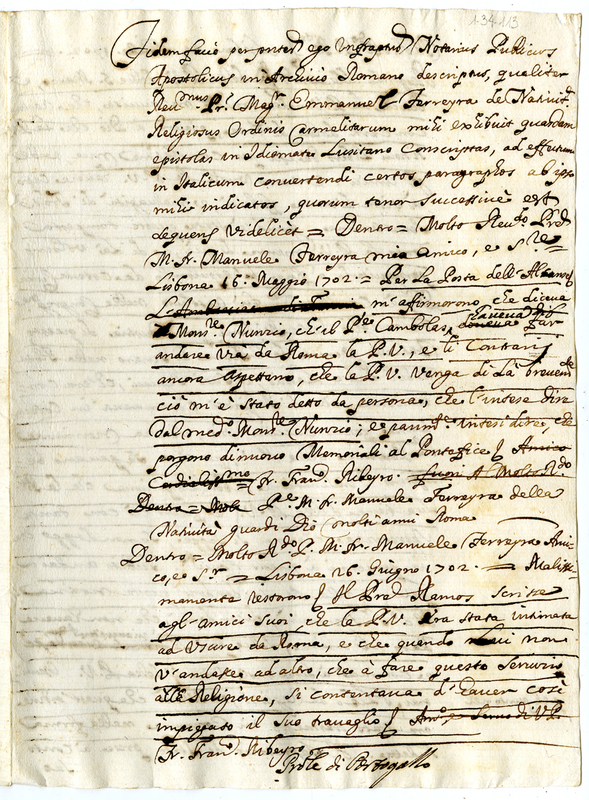 134 113
Fidem facio per pntes ego Infraptus Notarius Publicus
Apostolicus in Archivio Romano descriptus, qualiter
Reu.mus Pr. Mag.r Emmanuel Ferreyra de Nativit.
Religiosus Ordinis Carmelitarum mihi exhibuit quasdam
epistolas in Idiomate Lusitano Conscriptas, ad effectum
in Italicum convertendi certos paragraphos ab ipso
mihi indicatos, quorum tenor successive est
sequens videlicet = Dentro = Molto Reu.do Pred
M. Fr. Manuele Ferreyra mio Amico, e S.re =
Lisbona 16. Maggio 1702. = Per La Posta dell'
m'affirmorono, che diceua
Mons.re Nunzio, che il P.e Cambolas, haueua far
andare via da Roma la P.V., e li Contrarij
ancora Aspettano, che la P.V. venga di là breuem.te
ciò m'è stato detto da persona, che l'intese dire
dal med.o Mons.re Nunzio; e parim.te intesi dire, che
porgono di nuovo Memoriali al Pontefice Amico
Cordialissimo Fr. Fran.o Ribeyro. fuori A Molto R.do
Dentro = Molo P.e M. Fr. Manuele Ferreyra della
Natività guardi Dio molti anni Roma
Dentro = Molto R.do P. M. Fr. Manuele Ferreyra Ami-
co, e S.r = Lisbona 26. Giugno 1702. = Malissi-
mamente restorono Il Pred. Ramos scrisse
agl'amici suoi che la P.V. era stata intimata
ad Uscire da Roma, e che quando non
v'andasse ad altro, che à fare questo Seruizio
alla Religione, si contentaua d'hauer così
impiegato il suo trauaglio Am.o e Seruo di V.P.
Fr. Fran.o Ribeyro
Prõle di Portogallo